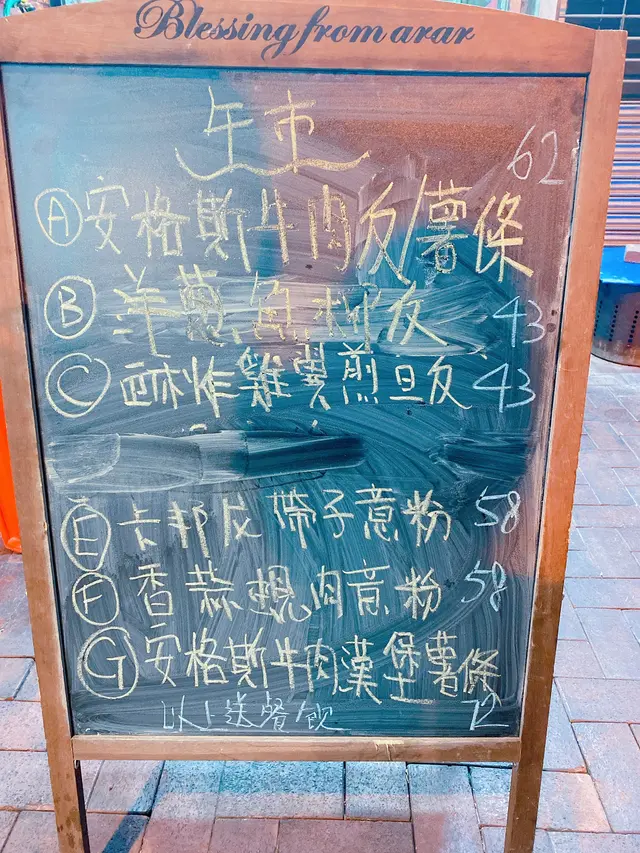 Blessing from arar
午市
Ⓐ 安格斯牛肉反/薯條 62
Ⓑ 羊蔥魚柳反 43
Ⓒ 酥炸雞翼煎旦反 43
Ⓔ 卡邦反帶子意粉 58
Ⓕ 香蒜蜆肉意粉 58
Ⓖ 安格斯牛肉漢堡薯條 72
以上送餐飲